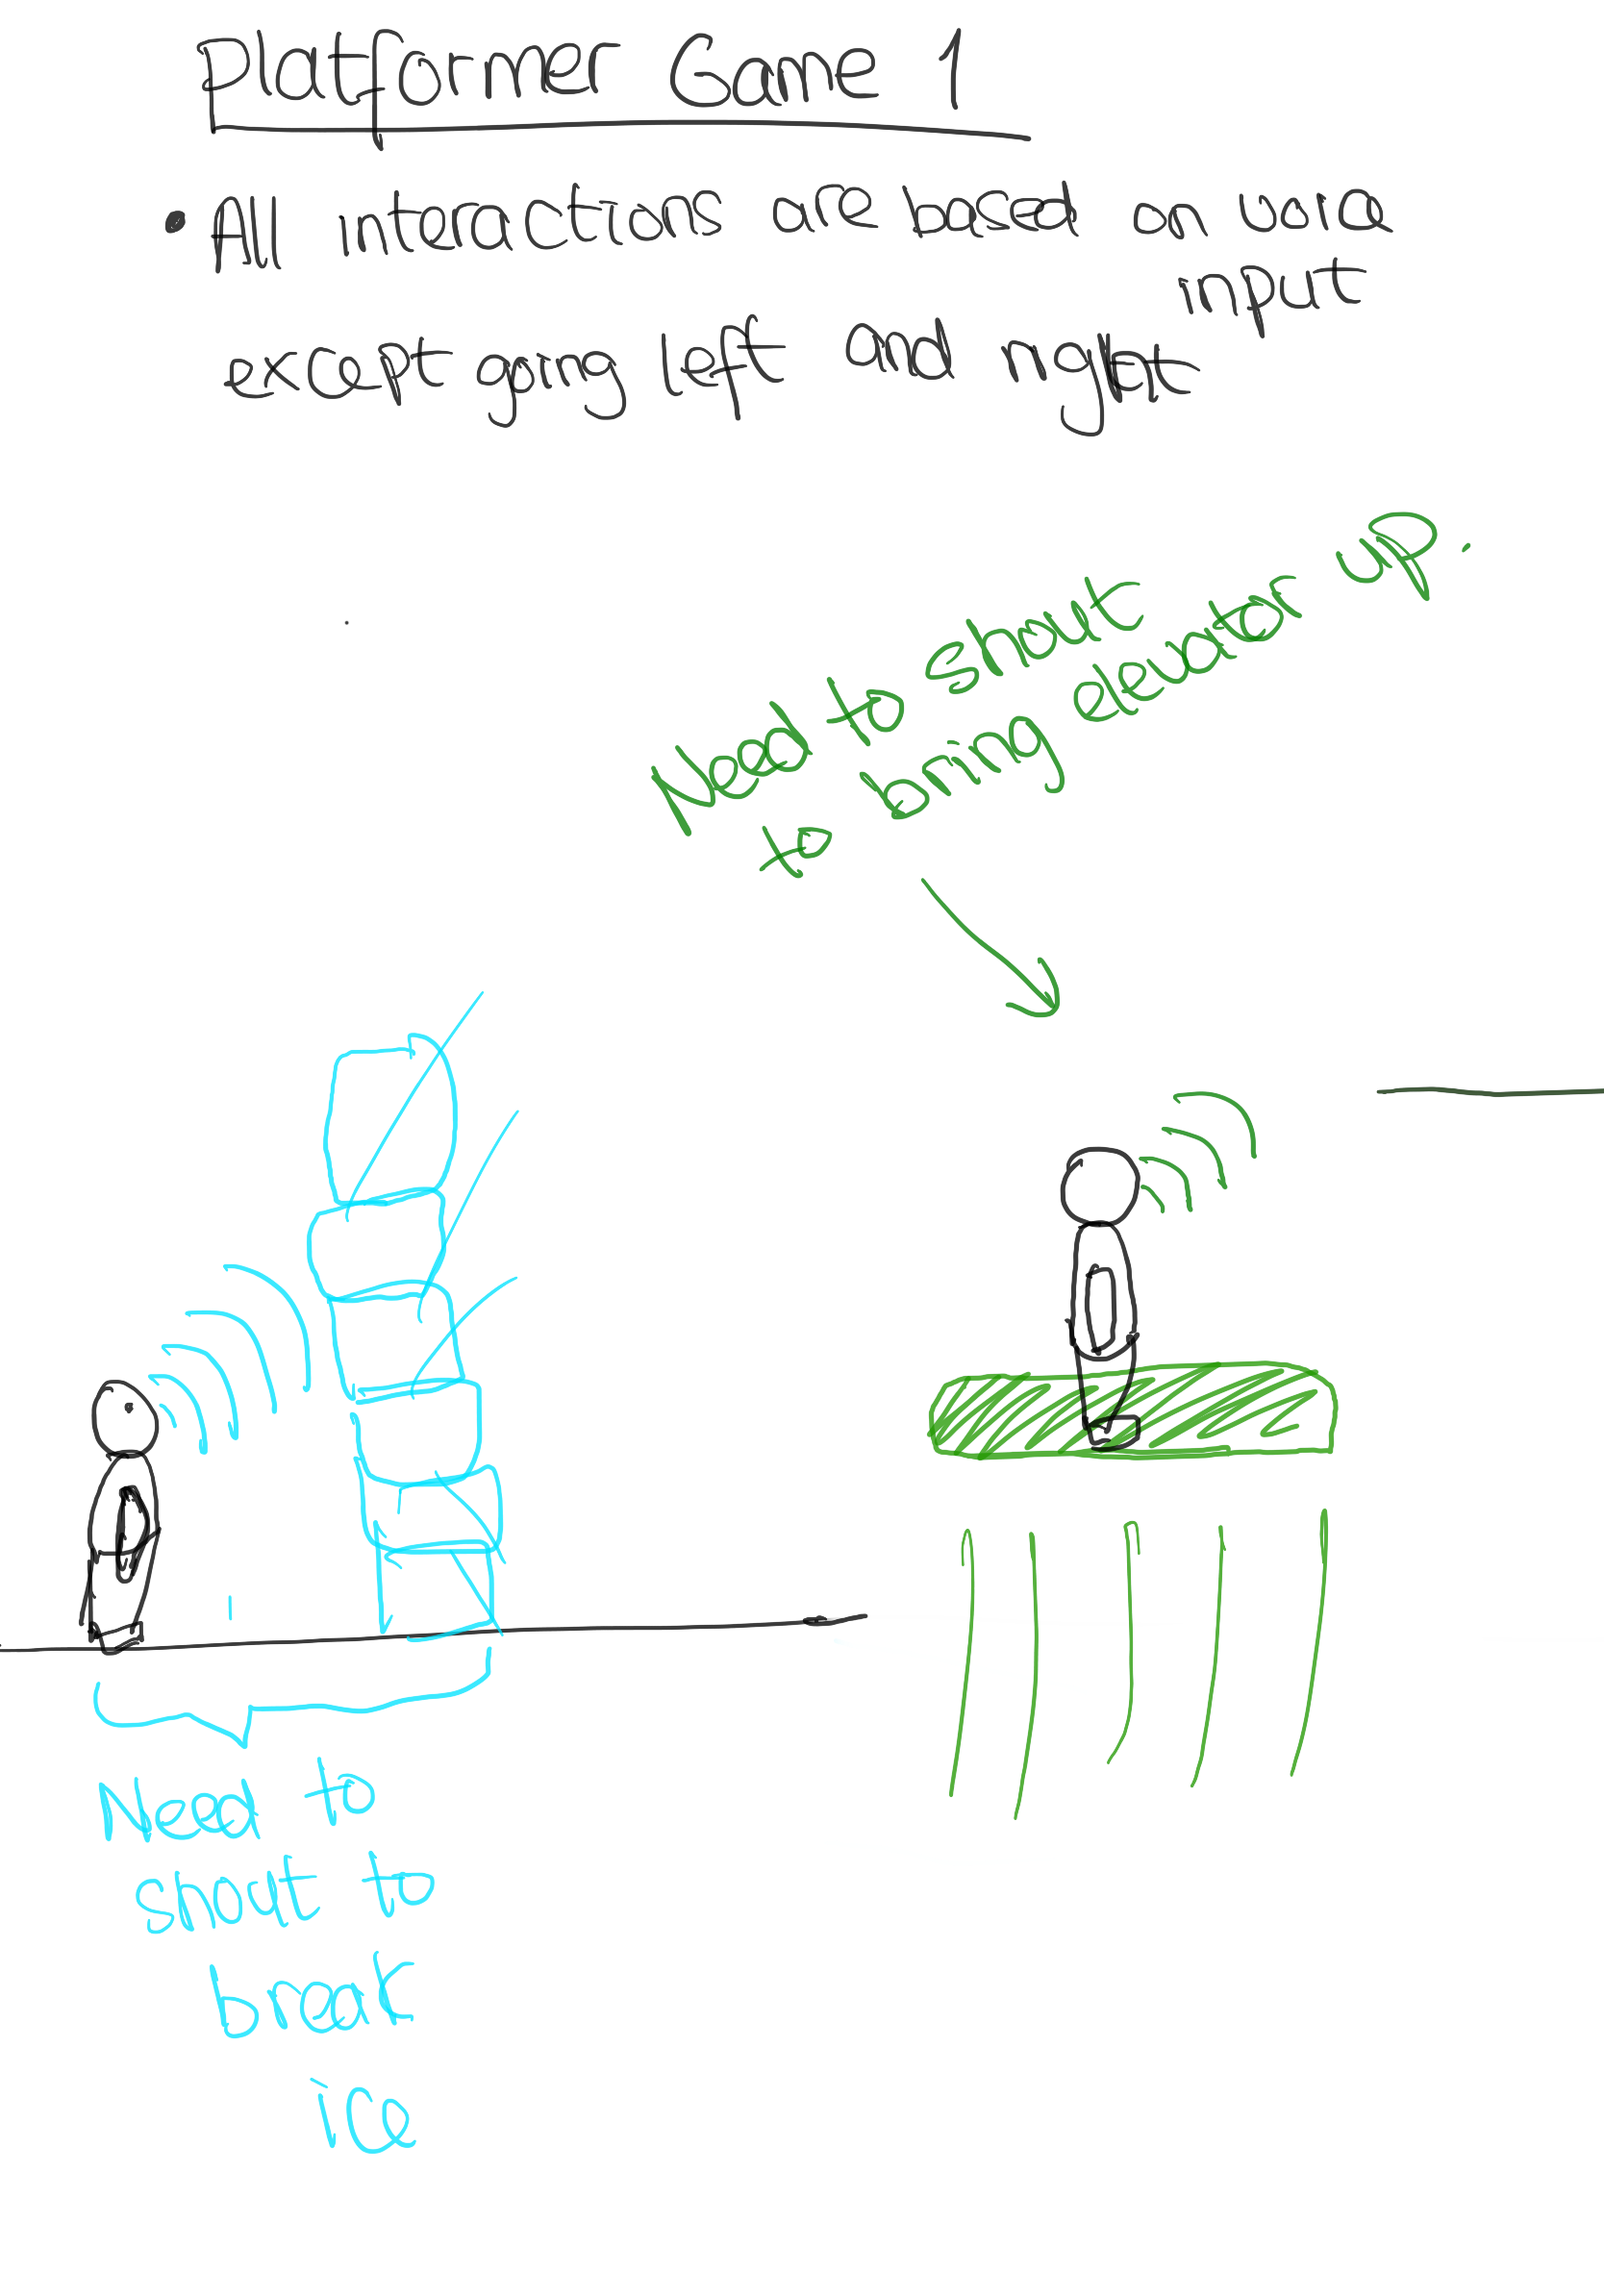 Platformer Game 1
• All interactions are based on voice
input
except going left and right
Need to shout
to bring elevator up.
Need to
shout to
break
ice